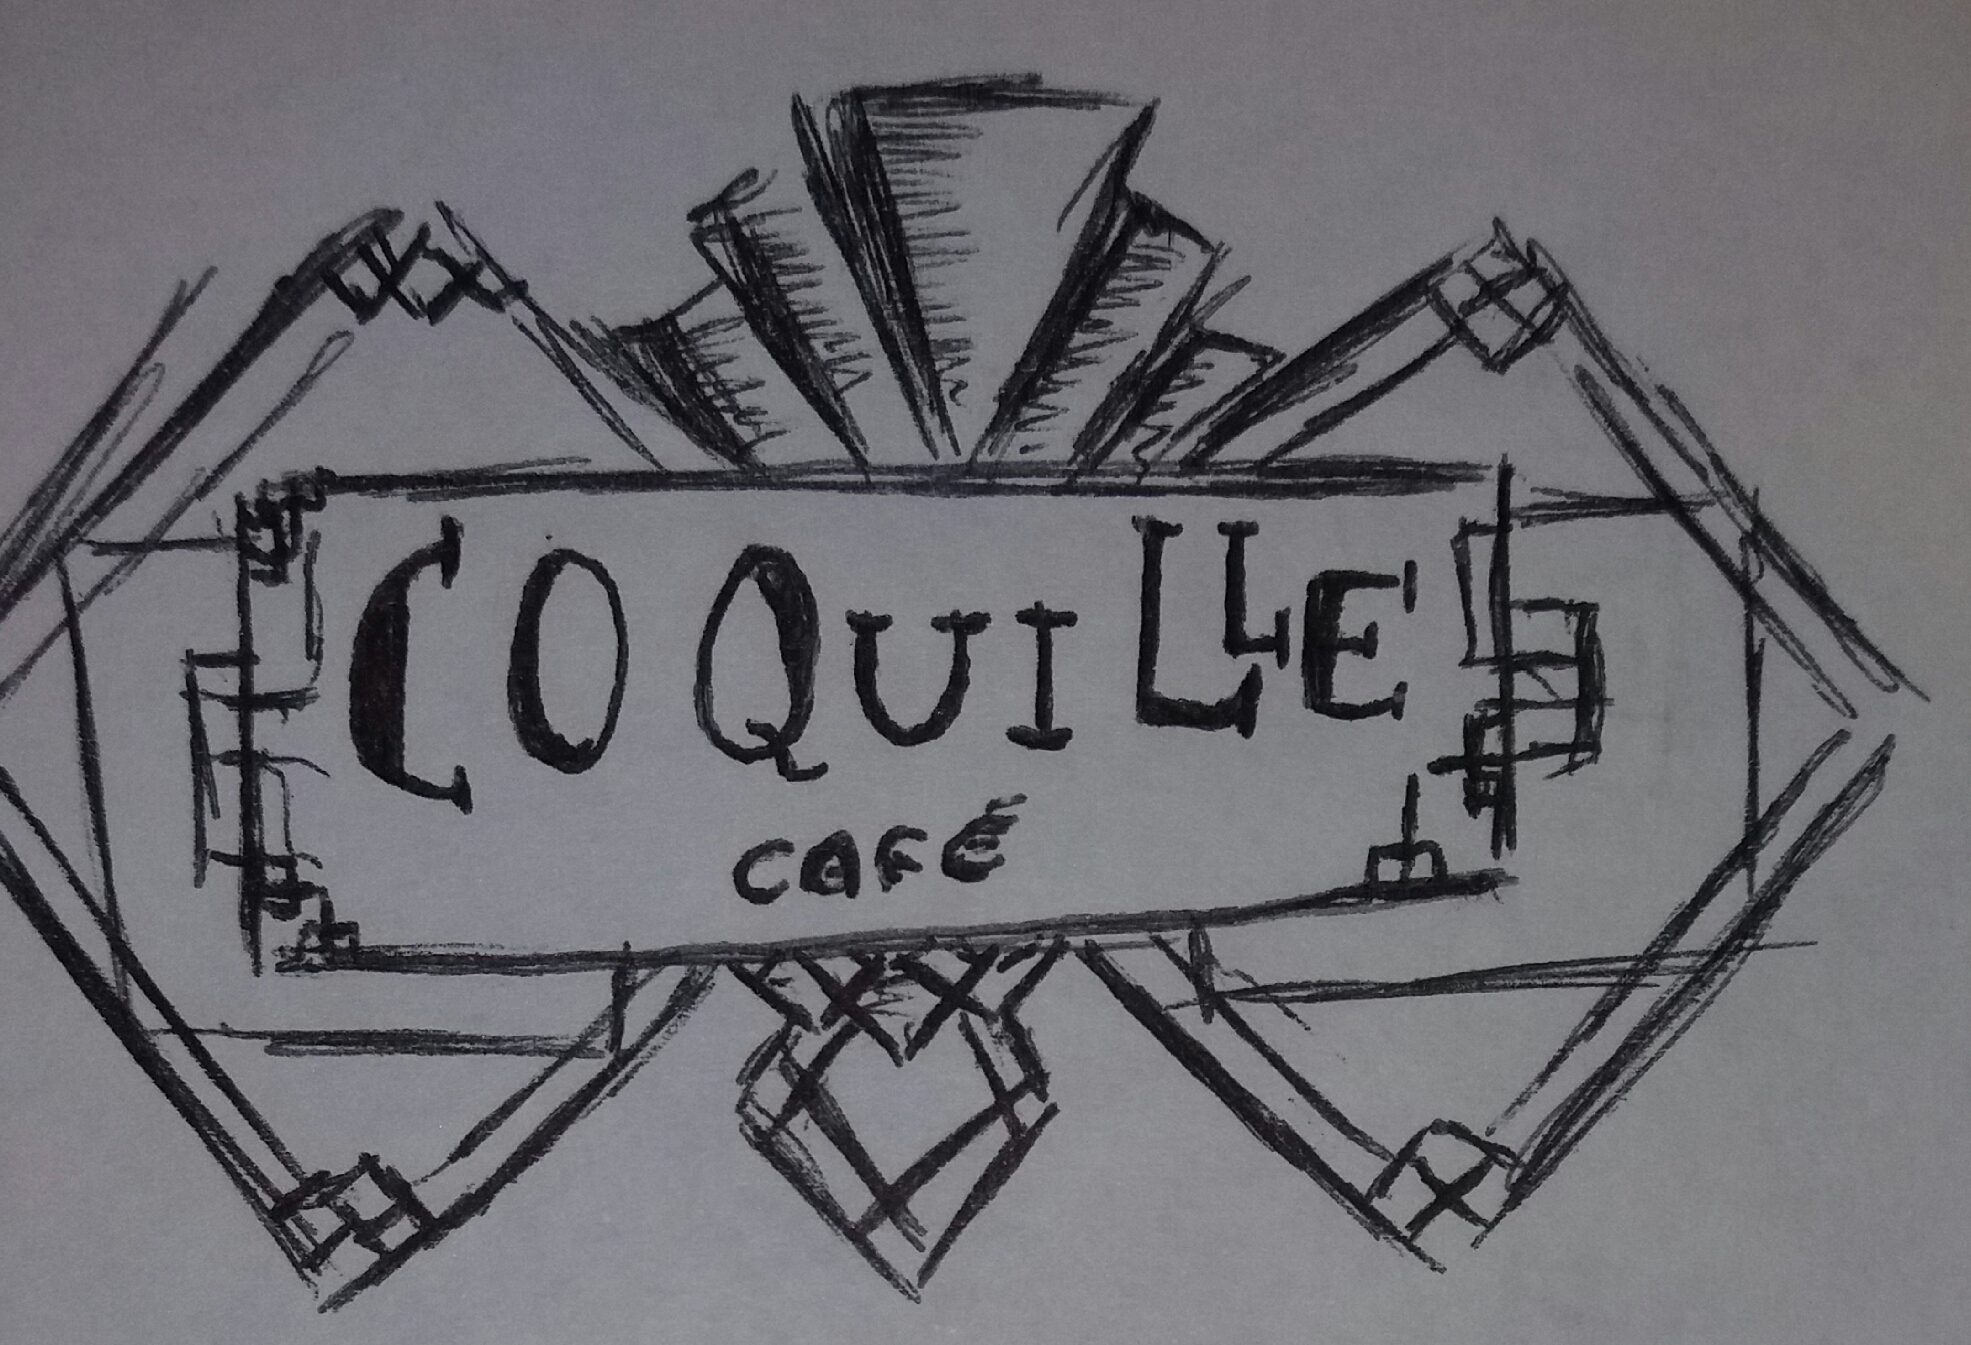 COQUILLE
CAFÉ